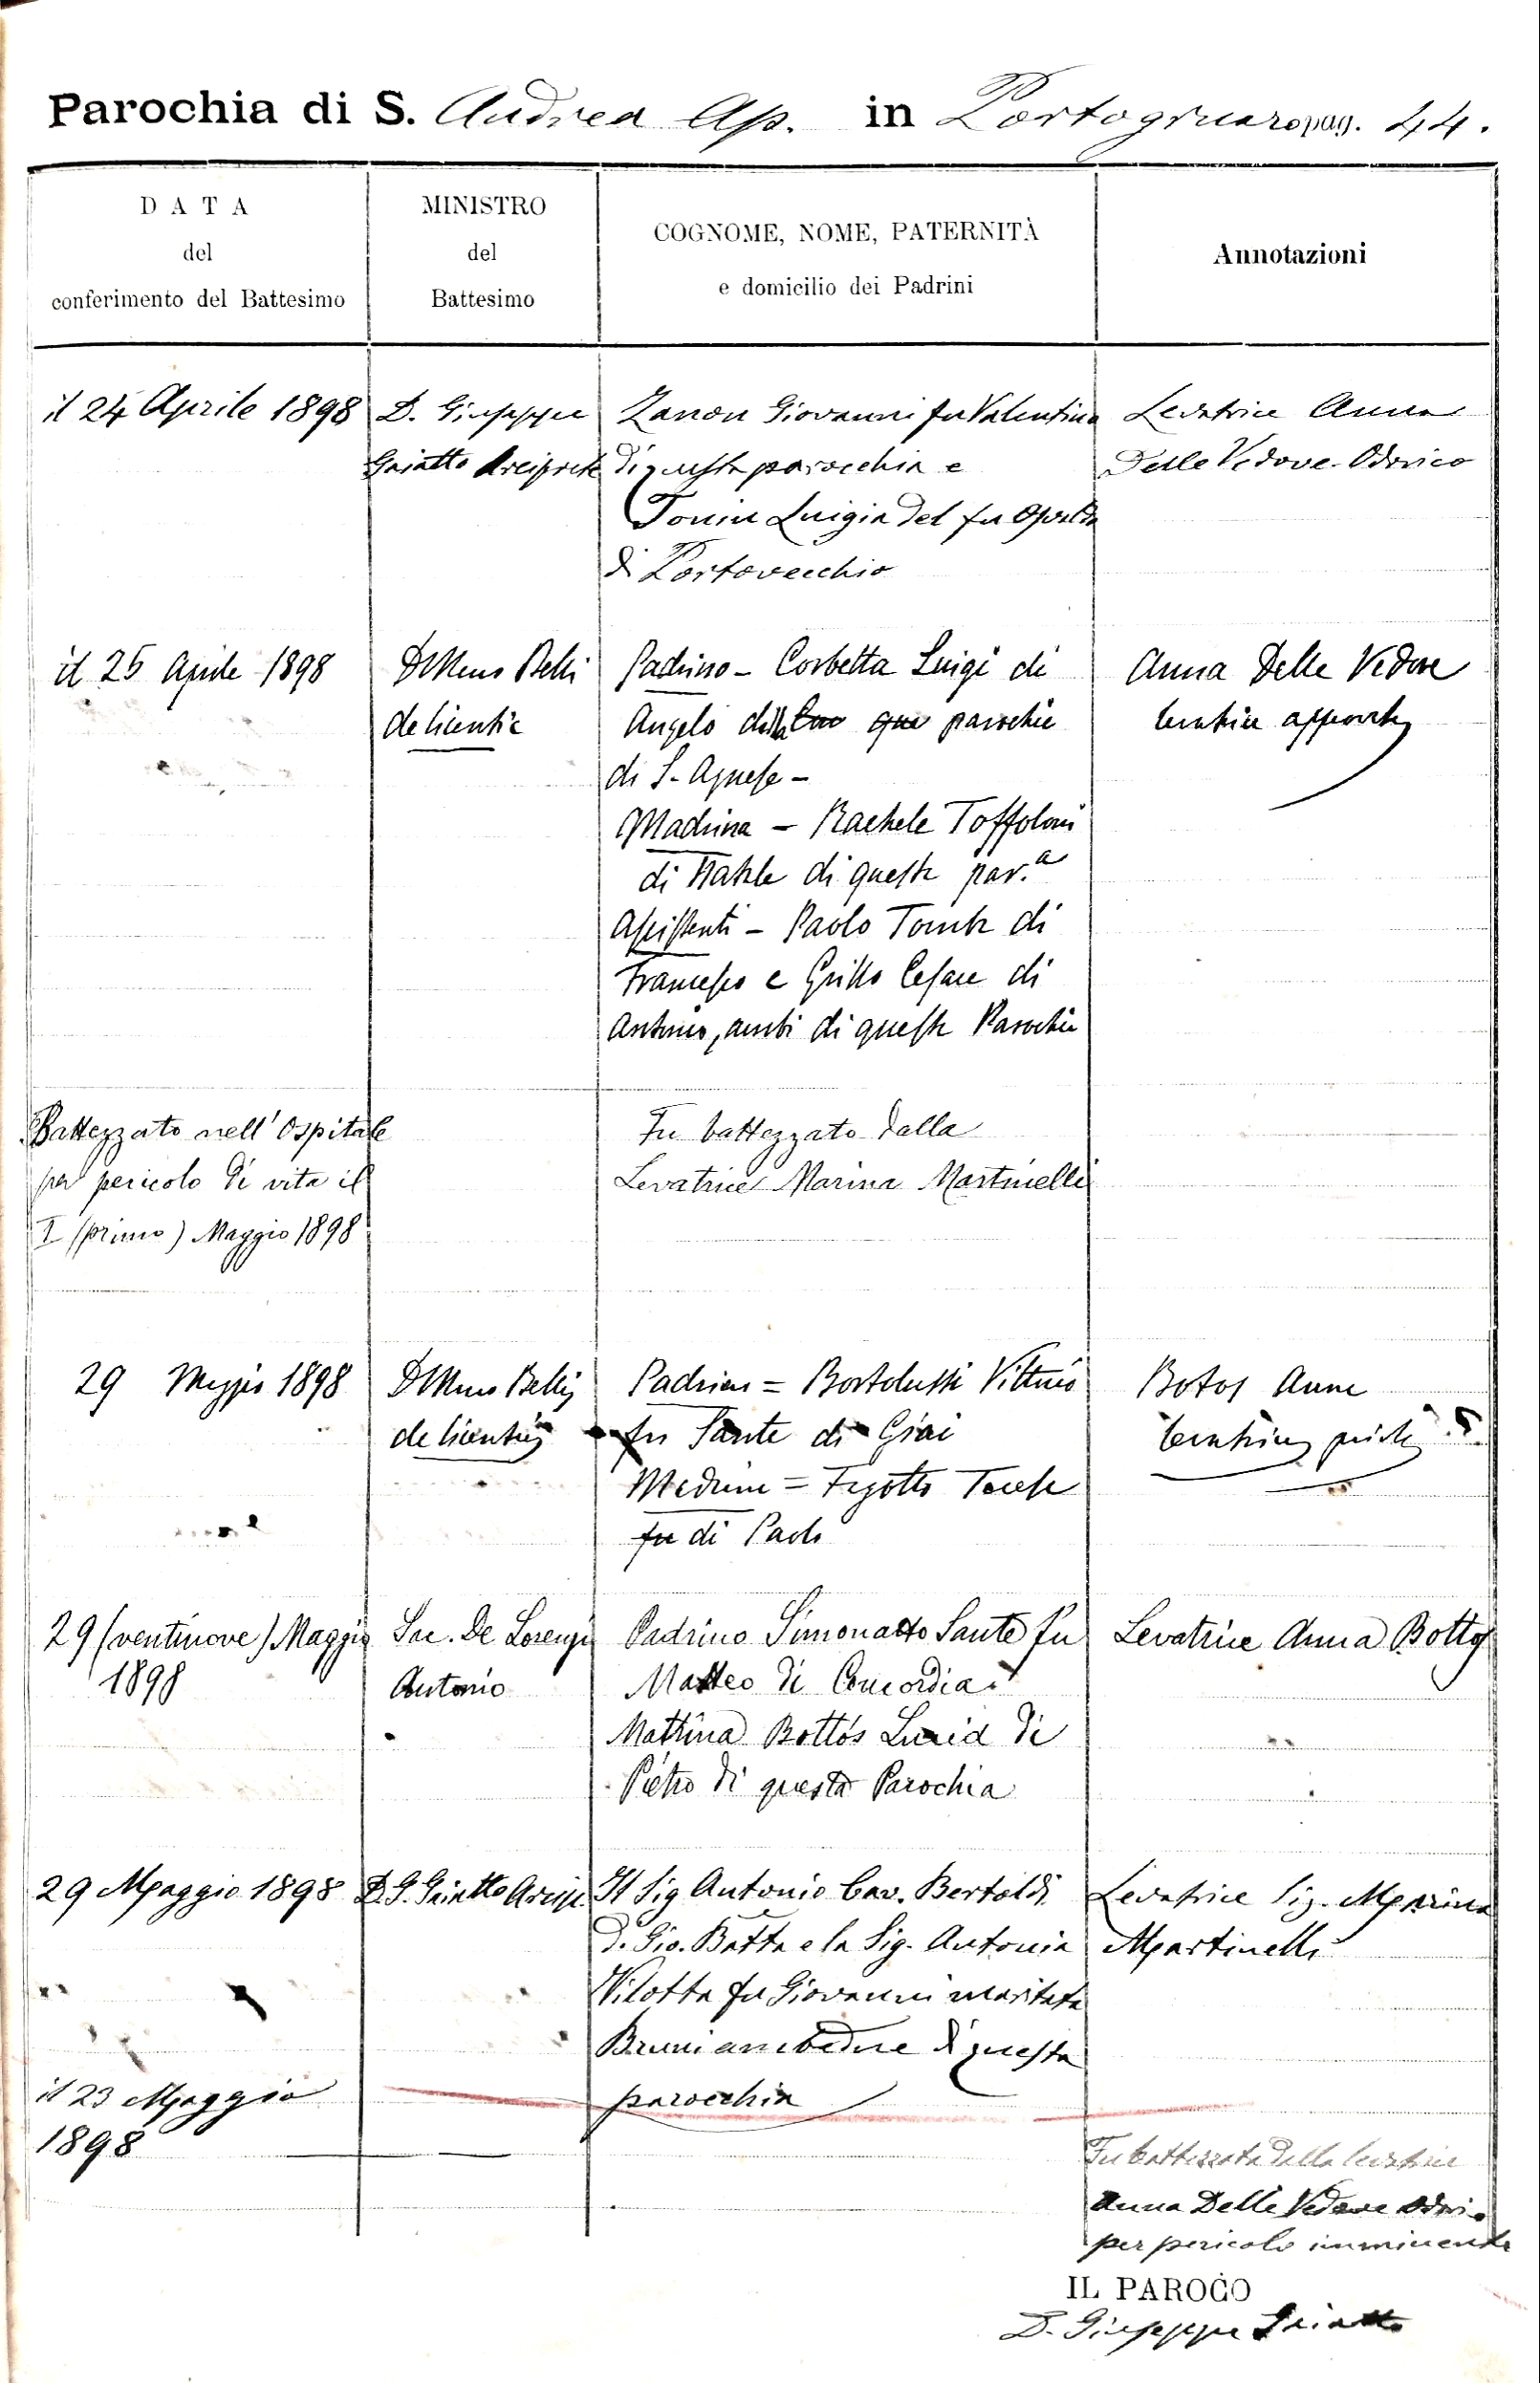 Parochia di S. Andrea Ap. in Portogruaro pag. 44.
DATA
del
conferimento del Battesimo
MINISTRO
del
Battesimo
COGNOME, NOME, PATERNITÀ
e domicilio dei Padrini
Annotazioni
il 24 Aprile 1898
D. Giuseppe
Griatto Arciprete
Zanon Giovanni fu Valentino
di questa parocchia e
Tonin Luigia del fu Osvaldo
di Portovecchio
Levatrice Anna
Delle Vedove Odorico
il 25 Aprile 1898
Belli
de licentia
Padrino - Corbetta Luigi di
Angelo della parochia
di S. Agnese -
Madrina - Rachele Toffoloni
di Natale di questa par.a
Assistenti - Paolo Tomba di
Francesco e Grillo Cesare di
Antonio, ambi di questa Parochia
Anna Delle Vedove
levatrice approvata
Battezzato nell' Ospitale
per pericolo di vita il
I (primo) Maggio 1898
Fu battezzato dalla
Levatrice Marina Martinelli
29 Maggio 1898
Belli
de licentia
Padrino = Bortolussi Vittorio
fu Sante di Giai
Madrina = Teresa
fu di Paolo
Botos Anna
levatrice
29 (ventinove) Maggio
1898
Sac. De Lorenzi
Antonio
Padrino Simonatto Sante fu
Matteo di Concordia
Mattina Bottos Lucia di
Pietro di questa Parochia
Levatrice Anna Bottos
29 Maggio 1898
D. G. Griatto Arcip.
Il Sig Antonio Cav. Bertoldi
di Gio. Batta e la Sig. Antonia
Vilotta fu Giovanni maritata
Bruni ambedue di questa
parocchia
Levatrice Sig. Marina
Martinelli
il 23 Maggio
1898
Fu battezzata dalla levatrice
Anna Delle Vedove
per pericolo imminente
IL PAROCO
D. Giuseppe Griatto